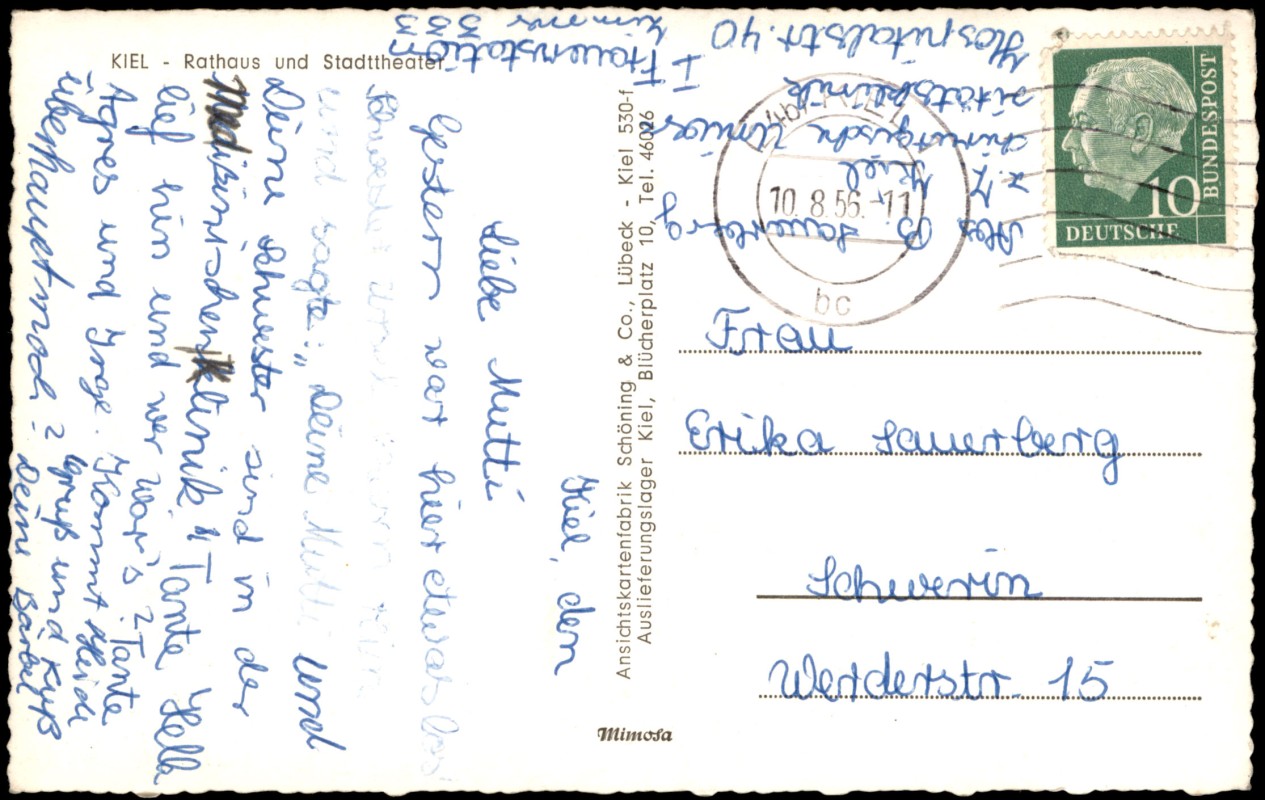 KIEL - Rathaus und Stadttheater
Kiel, den
Liebe Mutti
Gestern war hier etwas los
Schwester
und sagte: „Deine Mutti und
Deine Schwester sind in der
Medizinischen Klinik" Tante Hella
lief hin und wer war's? Tante
Agnes und Inge. Kommt Heidi
überhaupt noch?
Gruß und Kuß
Deine Bärbel
Ansichtskartenfabrik Schöning & Co., Lübeck - Kiel 530-f
Auslieferungslager Kiel, Blücherplatz 10, Tel. 46026
Mimosa
Abs B. Sauerberg
z. Z. Kiel
chirurgische Univer
sitätsklinik
Hospitalstr. 40
I Frauenstation
Zimmer 333
10.8.56.-11
bc
10
DEUTSCHE
BUNDESPOST
Frau
Erika Sauerberg
Schwerin
Werderstr. 15